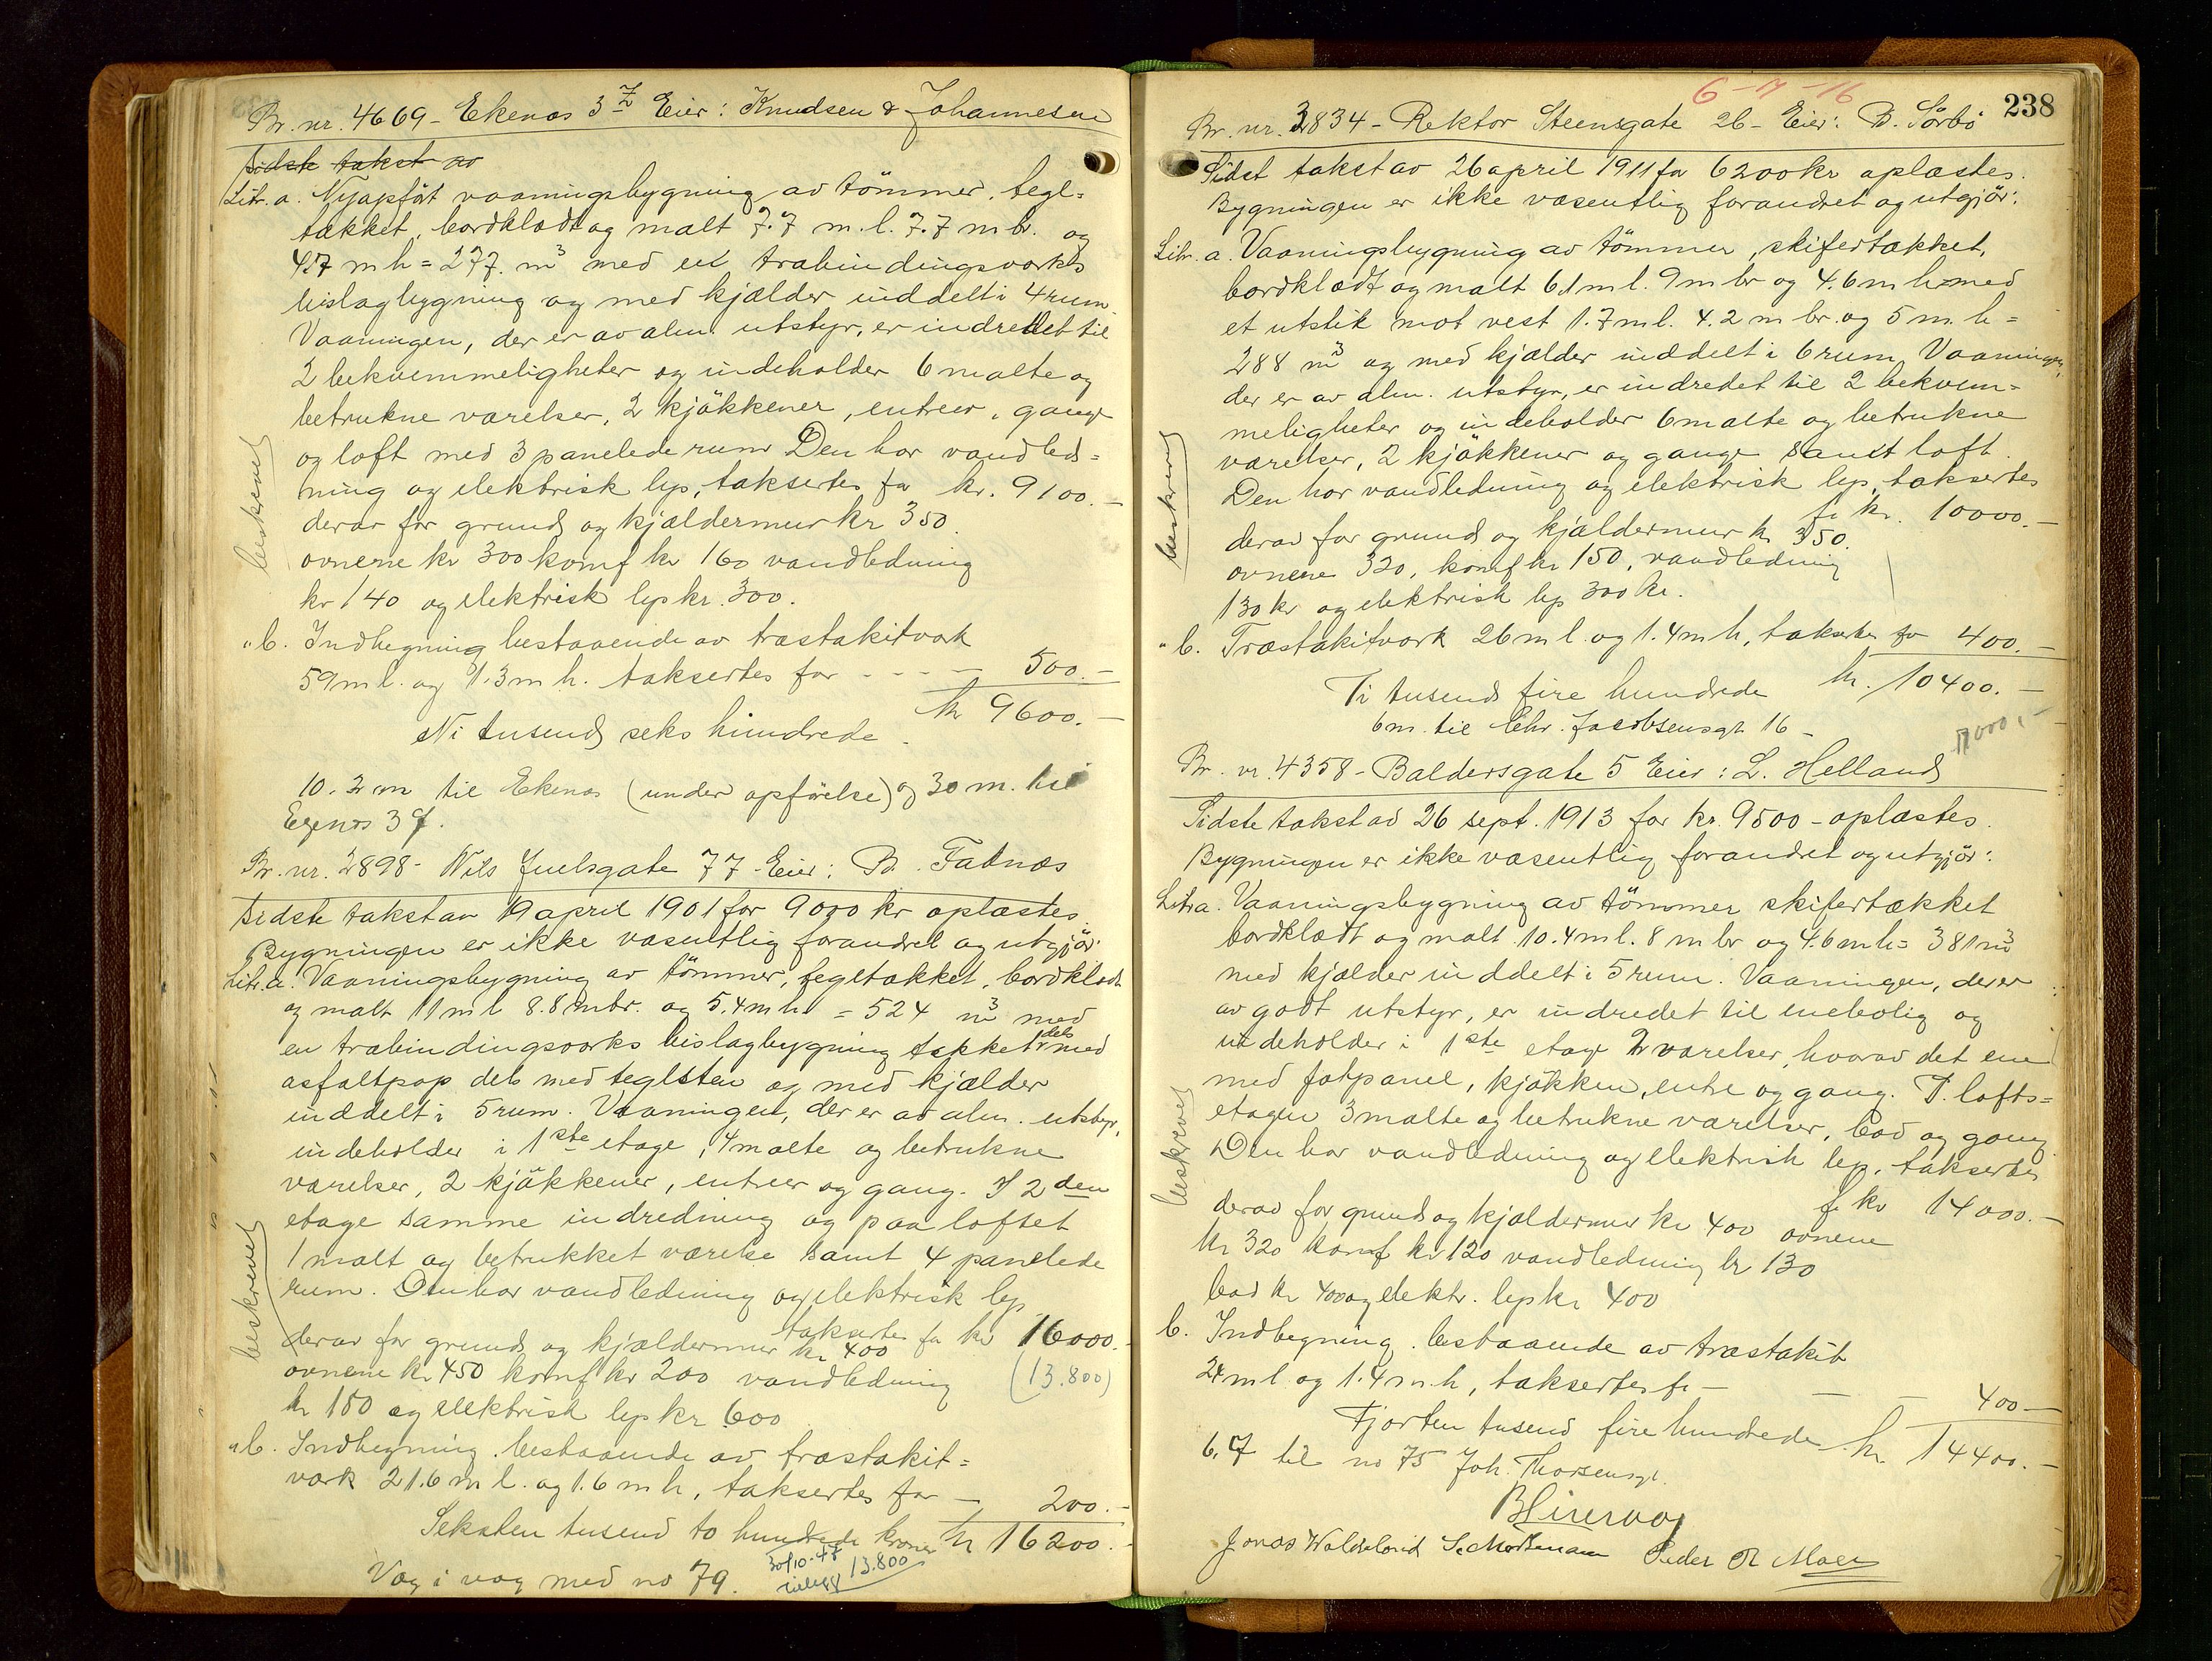 Br. nr. 4669 - Ekenæs 3 Z Eier: Knudsen & Johannesen
Sidste takst av
Litr. a. Nyopført vaaningsbygning av tömmer, tegl=
tækket, bordklædt og malt 7.7 m. l. 7.7 m br. og
4.7 m h = 277. m³ med en træbindingsverks
bislagbygning og med kjælder inddelt i 4 rum
Vaaningen, der er av alm. utstyr, er indredet til
2 bekvemmeligheter og indeholder 6 malte og
betrukne værelser, 2 kjøkkener, entreer, gange
og loft med 3 panelede rum. Den har vandled=
ning og elektrisk lys, taksertes for kr. 9100.-
derav for grund og kjældermur kr 350.
ovnene kr 300 komf kr 160 vandledning
kr 140 og elektrisk lys kr. 300.
beskrevet
" b. Indhegning bestaaende av træstakitverk
59 m l. og 1.3 m h. taksertes for - - - - 500.-
kr 9600.-
Ni tusend seks hundrede.
10.2 m til Ekenæs (under opførelse) og 30 m. til
Egenæs 3 f.
Br. nr. 2898 - Nils Juelsgate 77 - Eier: B. Fatnæs
Sidste takst av 19 april 1901 for 9000 kr oplæstes.
Bygningen er ikke væsentlig forandret og utgjør:
Litr. a. Vaaningsbygning av tömmer, tegltækket, bordklædt
og malt 11 m l 8.8 m br. og 5.4 m h. = 524 m³ med
en træbindingsverks bislagbygning tækket dels med
asfaltpap dels med teglsten og med kjælder
inddelt i 5 rum. Vaaningen, der er av alm. utstyr,
indeholder i 1ste etage, 4 malte og betrukne
værelser, 2 kjøkkener, entreer og gang. I 2den
etage samme indredning og paa loftet
1 malt og betrukket værelse samt 4 panelede
rum. Den har vandledning og elektrisk lys
taksertes for kr 16000.-
derav for grund og kjældermur kr 400
(13.800)
ovnene kr 450 komf kr 200 vandledning
kr 150 og elektrisk lys kr 600
beskrevet
" b. Indhegning bestaaende av træstakit=
verk 21.6 m l. og 1.6 m h, taksertes for - 200.-
Seksten tusend to hundrede kroner kr 16200.-
Væg i væg med no 79.
30/10-48 13.800
6-17-16
238
Br. nr. 2834 - Rektor Steensgate 26 - Eier: B. Sörbö
Sidst takst av 26 april 1911 for 6200 kr oplæstes.
Bygningen er ikke væsentlig forandret og utgjør:
Litr. a. Vaaningsbygning av tömmer, skifertækket,
bordklædt og malt 6.1 m l. 9 m br og 4.6 m h med
et utstik mot vest 1.7 m l. 4.2 m br. og 5 m. h =
288 m³ og med kjælder inddelt i 6 rum. Vaaningen,
der er av alm. utstyr, er indredet til 2 bekvem=
meligheter og indeholder 6 malte og betrukne
værelser, 2 kjøkkener og gange samt loft.
Den har vandledning og elektrisk lys, taksertes
for kr. 10000.-
derav for grund og kjældermur kr 350.
ovnene 320, komf kr 150, vandledning
130 kr og elektrisk lys 300 kr.
beskrevet
" b. Træstakitverk 26 m l. og 1.4 m h, taksertes for 400.-
Ti tusend fire hundrede kr. 10400.-
6 m. til Chr. Jacobsensgt 16 -
17000,-
Br. nr. 4358 - Baldersgate 5 Eier: L. Helland
Sidste takst av 26 sept. 1913 for kr. 9500 - oplæstes.
Bygningen er ikke væsentlig forandret og utgjør:
Litr. a. Vaaningsbygning av tömmer skifertækket
bordklædt og malt 10.4 m l. 8 m br og 4.6 m h = 381 m³
med kjælder inddelt i 5 rum. Vaaningen, der er
av godt utstyr, er indredet til enebolig og
indeholder i 1ste etage 2 værelser, hvorav det ene
med fotpanel, kjøkken, entre og gang. I lofts=
etagen 3 malte og betrukne værelser, bad og gang
Den har vandledning og elektrisk lys, taksertes
for kr 14000.-
derav for grund og kjældermur kr 400 ovnene
kr 320 komf kr 120 vandledning kr 130
bad kr 400 og elektr. lys kr 400
beskrevet
b. Indhegning bestaaende av træstakit
24 m l og 1.4 m. h, taksertes for - - - 400-
Fjorten tusend fire hundrede kr. 14400.-
6.7 til no 75 Joh. Thorsensgt.
Jonas Waldeland S. Mortensen Peder R Moen